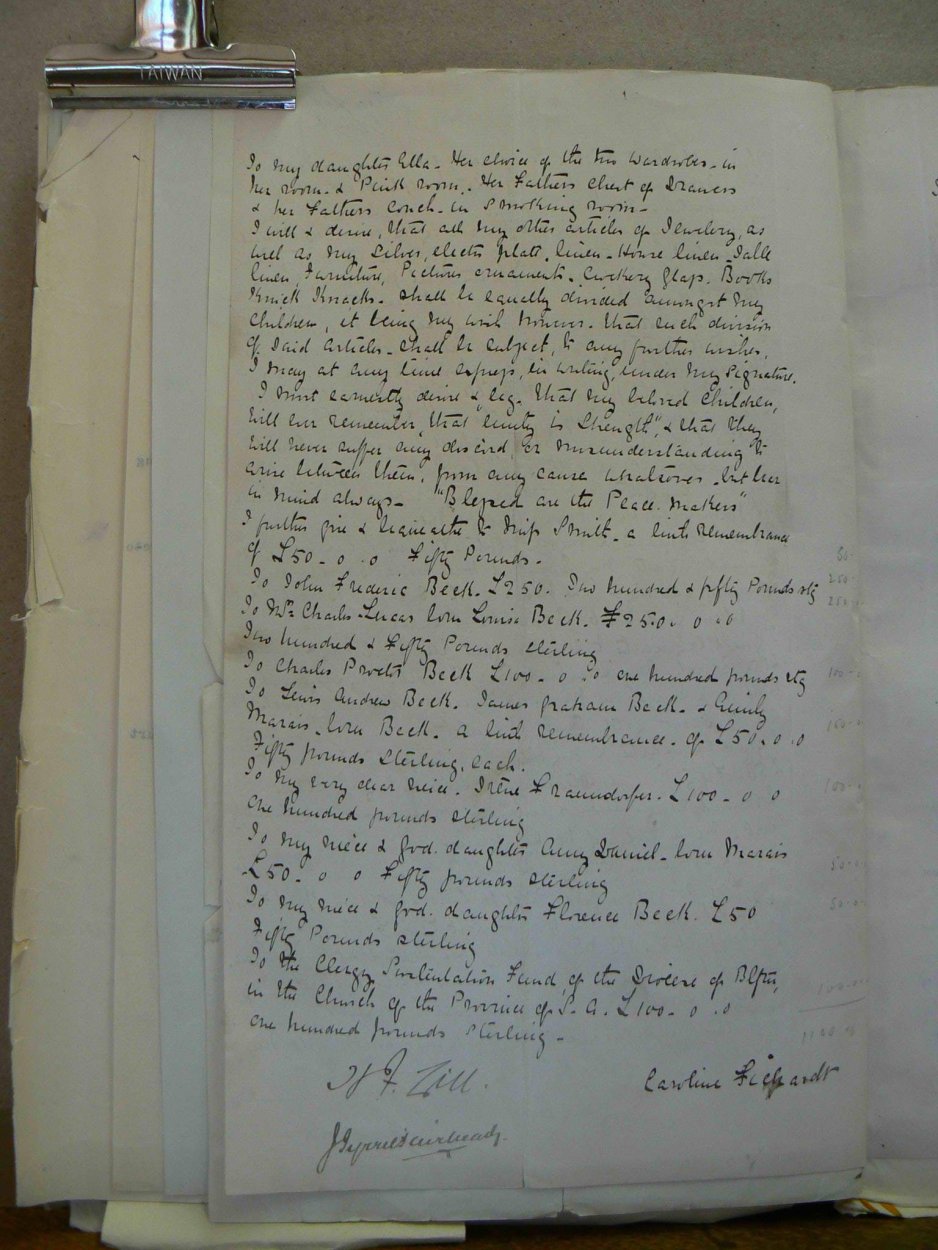 TAIWAN
To my daughter Ella - Her choice of the two wardrobes - in
her room - & Pink room. Her Fathers Chest of Drawers
& her Fathers Couch - in Smoking room -
I will & desire, that all my other articles of Jewelery, as
well as my Silver, electro plate, linen - House linen - Table
linen, Furniture, Pictures ornaments - Crockery glass. Books
Knick Knacks - shall be equally divided amongst my
Children, it being my wish however - that such division
of said articles - shall be subject, to any further wishes,
I may at any time express, in writing, under my Signature.
I most earnestly desire & beg - that my beloved Children,
will ever remember, that "unity is Strength", & that they
will never suffer any discord, or misunderstanding to
arise between them, from any cause whatsoever - but bear
in mind always - "Blessed are the Peace-Makers"
I further give & bequeathe to Miss Smith - a remembrance
of £50 - 0 . 0 Fifty Pounds -
To John Frederic Beck. £250. Two hundred & fifty Pounds stg
To Mrs Charles Lucas born Louisa Beck. £250. 0 . 0
Two hundred & Fifty Pounds sterling
To Charles Proctor Beck £100 - 0 . 0 one hundred pounds stg
To Lewis Andrew Beck. James Graham Beck - & Emily
Marais - born Beck - a remembrance - of £50. 0 . 0
Fifty pounds sterling, each.
To my very dear niece. Irene Fraundorfer. £100 - 0 0
one hundred pounds sterling
To my niece & god-daughter Amy Daniel - born Marais
£50 - 0 0 Fifty pounds sterling
To my niece & god-daughter Florence Beck. £50
Fifty Pounds sterling
To the Clergy Sustentation Fund of the Diocese of Blftn,
in the Church of the Province of S. A. £100 - 0 . 0
one hundred pounds sterling -
Caroline Fichardt